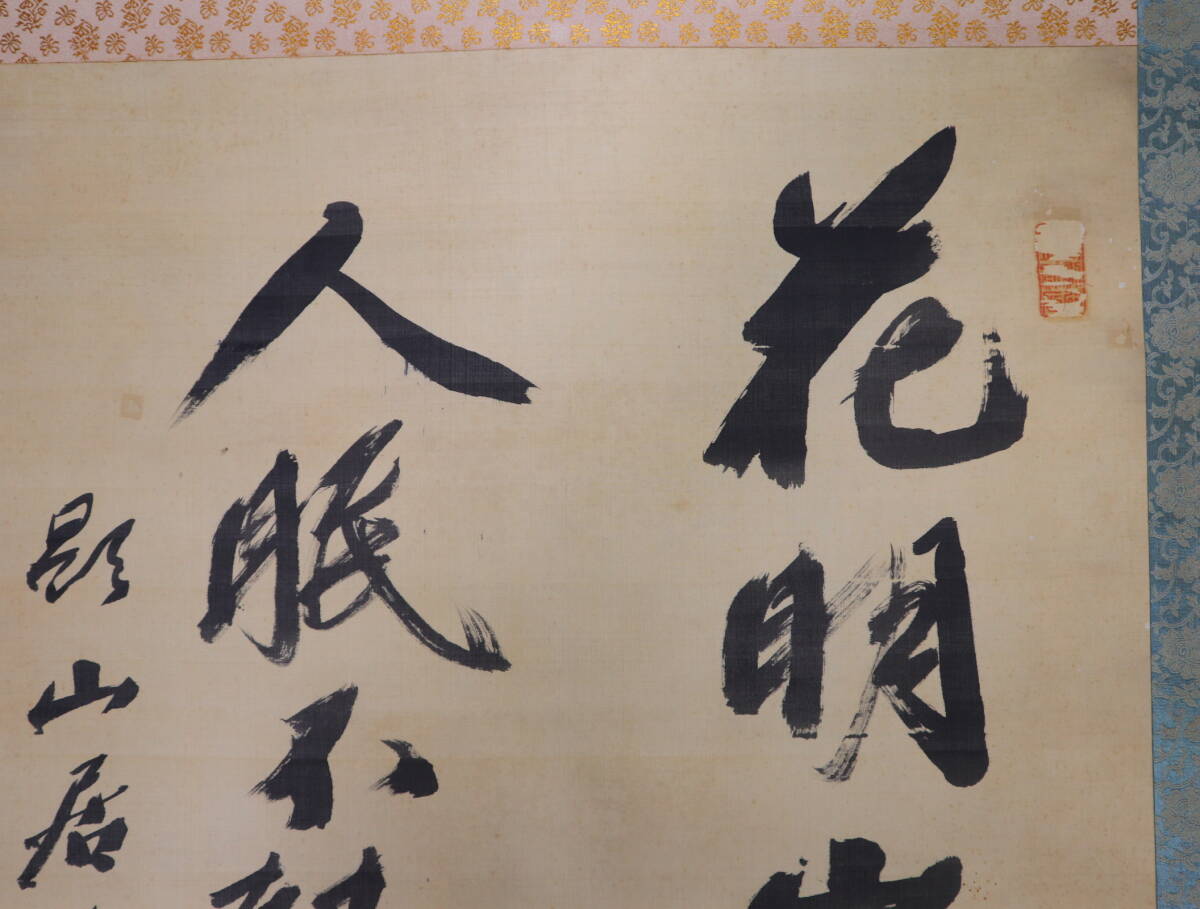 花明
人眠不
題山居